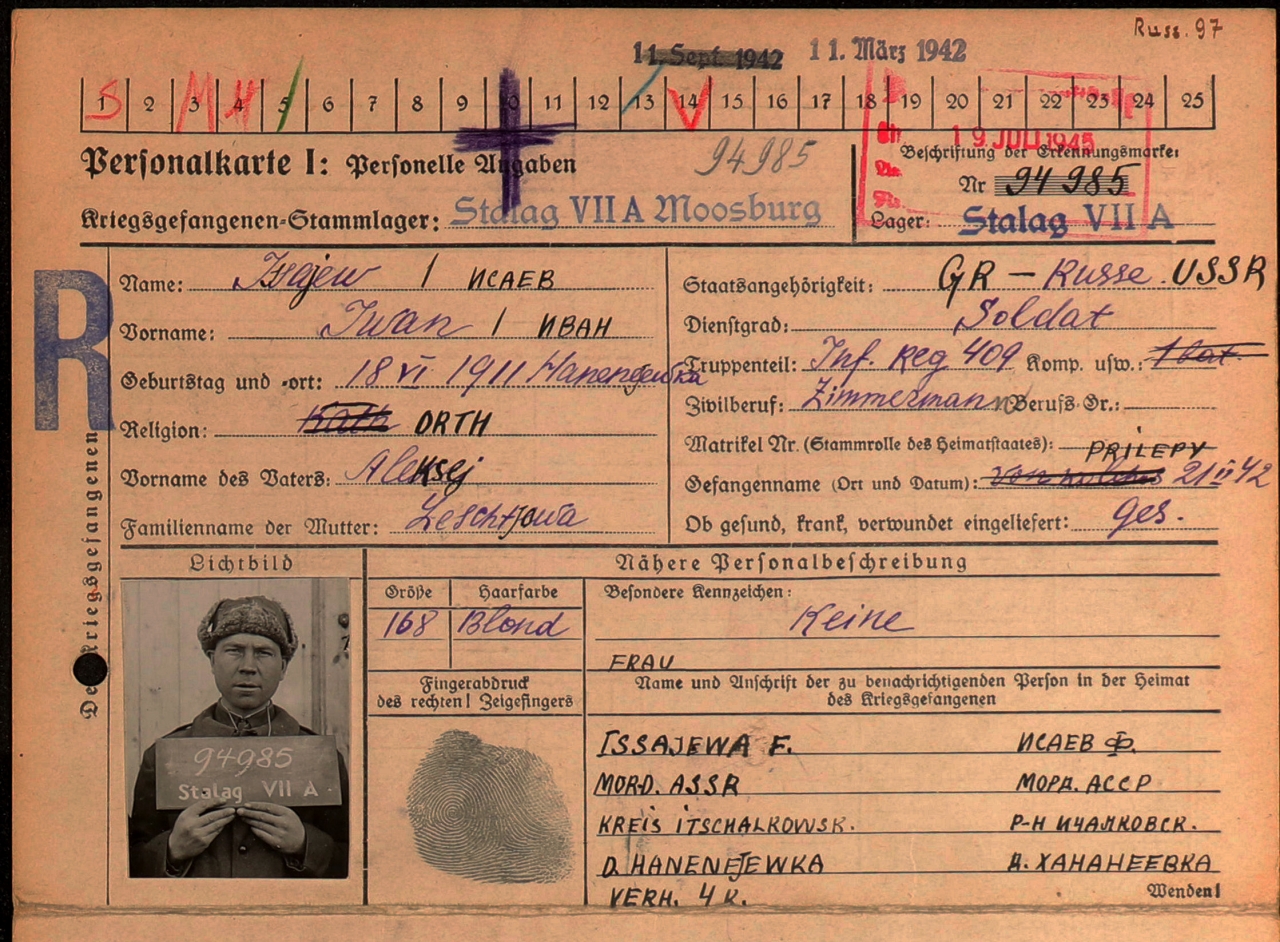 Russ. 97
11. Sept. 1942 11. März 1942
1 2 3 4 5 6 7 8 9 10 11 12 13 14 15 16 17 18 19 20 21 22 23 24 25
S M V
19. JULI 1945
Personalkarte I: Personelle Angaben 94985
Beschriftung der Erkennungsmarke:
Nr 94985
Kriegsgefangenen-Stammlager: Stalag VII A Moosburg
Lager: Stalag VII A
R
Name: Isajew / ИСАЕВ
Staatsangehörigkeit: GR – Russe. USSR
Vorname: Iwan / ИВАН
Dienstgrad: Soldat
Geburtstag und -ort: 18 VI 1911 Hanenejewka
Truppenteil: Inf. Reg 409 Komp. usw.: 1 bat.
Zivilberuf: Zimmermann Berufs-Gr.:
Religion: Kath ORTH
Matrikel Nr. (Stammrolle des Heimatstaates):
PRILEPY
Vorname des Vaters: Aleksej
Gefangenname (Ort und Datum): 21 II 42
Familienname der Mutter:
Ob gesund, krank, verwundet eingeliefert: ges.
Des Kriegsgefangenen
Lichtbild
Nähere Personalbeschreibung
Größe Haarfarbe Besondere Kennzeichen:
168 Blond Keine
FRAU
Fingerabdruck
des rechten! Zeigefingers
Name und Anschrift der zu benachrichtigenden Person in der Heimat
des Kriegsgefangenen
94985
Stalag VII A
ISSAJEWA F. ИСАЕВ Ф.
MORD. ASSR МОРД. АССР
KREIS ITSCHALKOWSK. Р-Н ИЧАЛКОВСК.
D. HANENEJEWKA Д. ХАНАНЕЕВКА
VERH. 4 K.
Wenden!